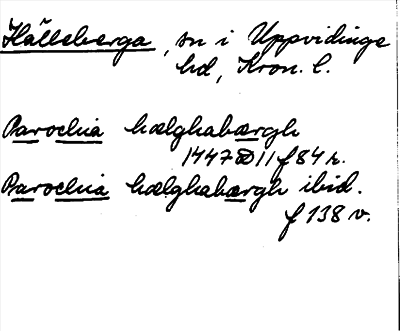 Hälleberga, sn i Uppvidinge
hd, Kron. l.
Parochia hælghabærgh
1447 D 11 f 84 r.
Parochia hælghabærgh ibid.
f 138 v.